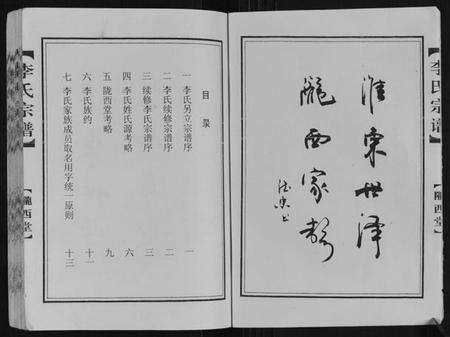 李氏宗谱
隴西堂
淮東世泽
隴西家聲
目录
一 李氏另立宗谱序 一
二 李氏续修宗谱序 二
三 续修李氏宗谱序 三
四 李氏姓氏源考略 六
五 陇西堂考略 九
六 李氏族约 十一
七 李氏家族成员取名用字统一原则 十三
李氏宗谱
隴西堂